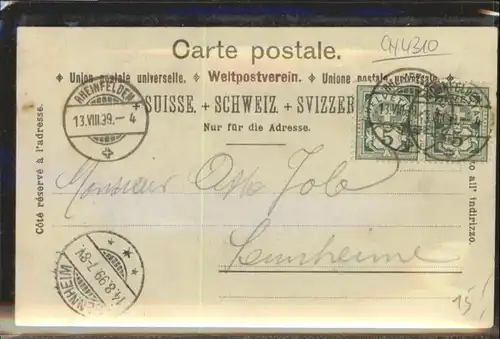 CH4310
Carte postale.
Union postale universelle. Weltpostverein. Unione postale universale.
SUISSE. + SCHWEIZ. + SVIZZER
Nur für die Adresse.
RHEINFELDEN
13.VIII.99.-4
5
5
Côté réservé à l'adresse.
to all' indirizzo.
Monsieur Otto
14.8.99.7-8V.
15!